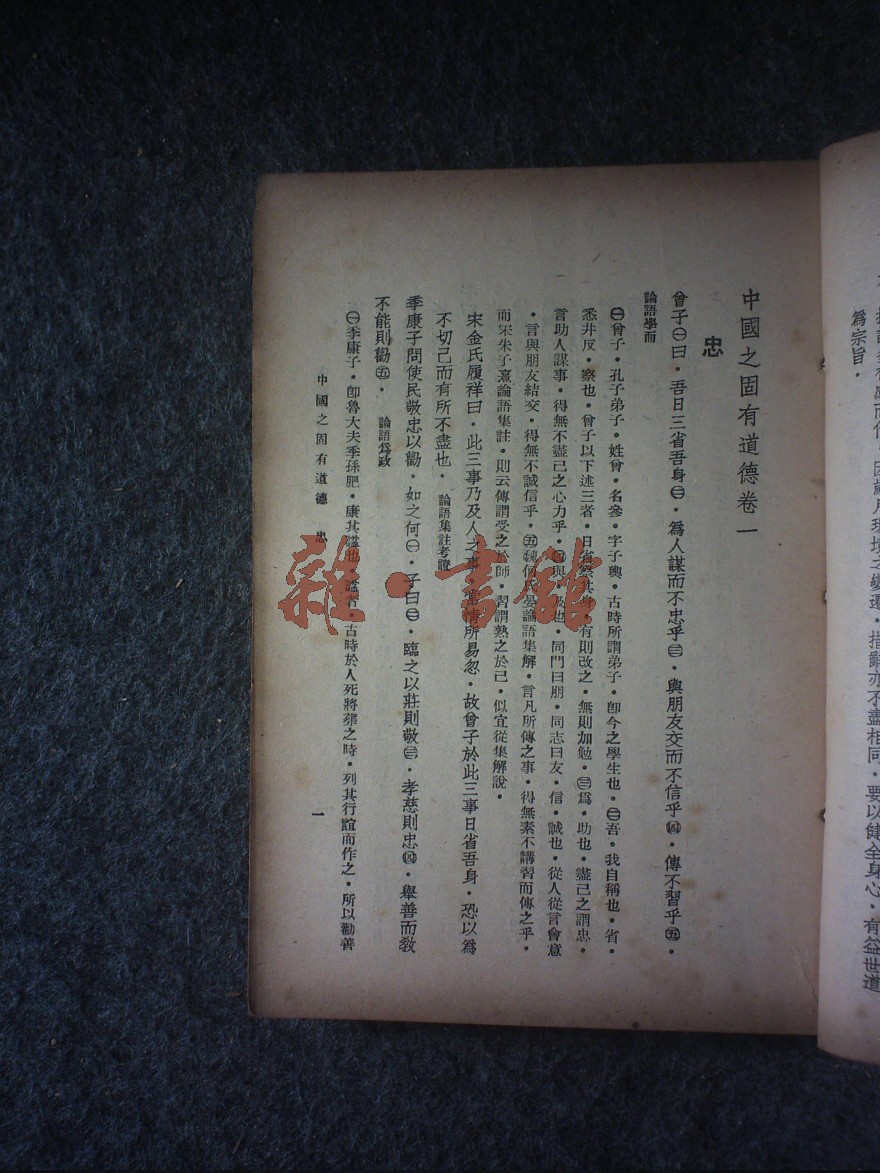 為宗旨．
中國之固有道德卷一
忠
曾子㊀曰．吾日三省吾身㊁．為人謀而不忠乎㊂．與朋友交而不信乎㊃．傳不習乎㊄．
論語學而
㊀曾子．孔子弟子．姓曾．名參．字子輿．古時所謂弟子．卽今之學生也．㊁吾．我自稱也．省．
悉井反．察也．曾子以下述三者．日省察其身．有則改之．無則加勉．㊂為．助也．盡己之謂忠．
言助人謀事．得無不盡己之心力乎．㊃與．及也．同門曰朋．同志曰友．信．誠也．從人從言會意
．言與朋友結交．得無不誠信乎．㊄魏何氏晏論語集解．言凡所傳之事．得無素不講習而傳之乎．
而宋朱子熹論語集註．則云傳謂受之於師．習謂熟之於己．似宜從集解說．
宋金氏履祥曰．此三事乃及人之事．常情所易忽．故曾子於此三事日省吾身．恐以為
不切己而有所不盡也．　論語集註考證
季康子問使民敬忠以勸．如之何㊀．子曰㊁．臨之以莊則敬㊂．孝慈則忠㊃．舉善而教
不能則勸㊄．　論語為政
㊀季康子．卽魯大夫季孫肥．康其謚也．謚者．古時於人死將葬之時．列其行誼而作之．所以勸善
中國之固有道德　忠
一
雜·書館